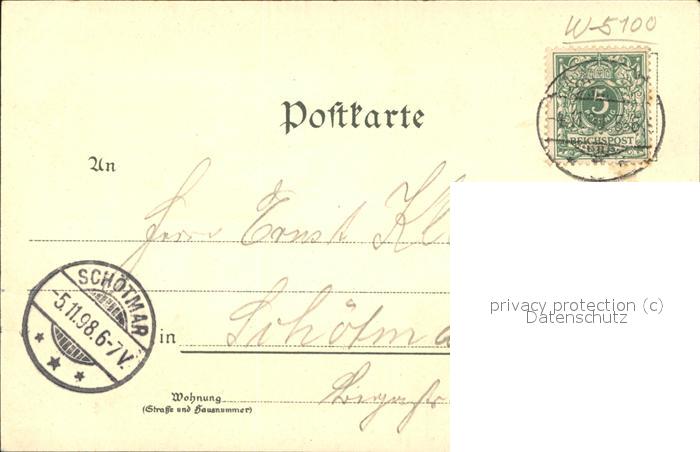 W-5100
5
REICHSPOST
Postkarte
An
Herrn Ernst Kl
SCHÖTMAR
5.11.98.6-7V.
in Schötma
Wohnung
(Straße und Hausnummer)
privacy protection (c)
Datenschutz